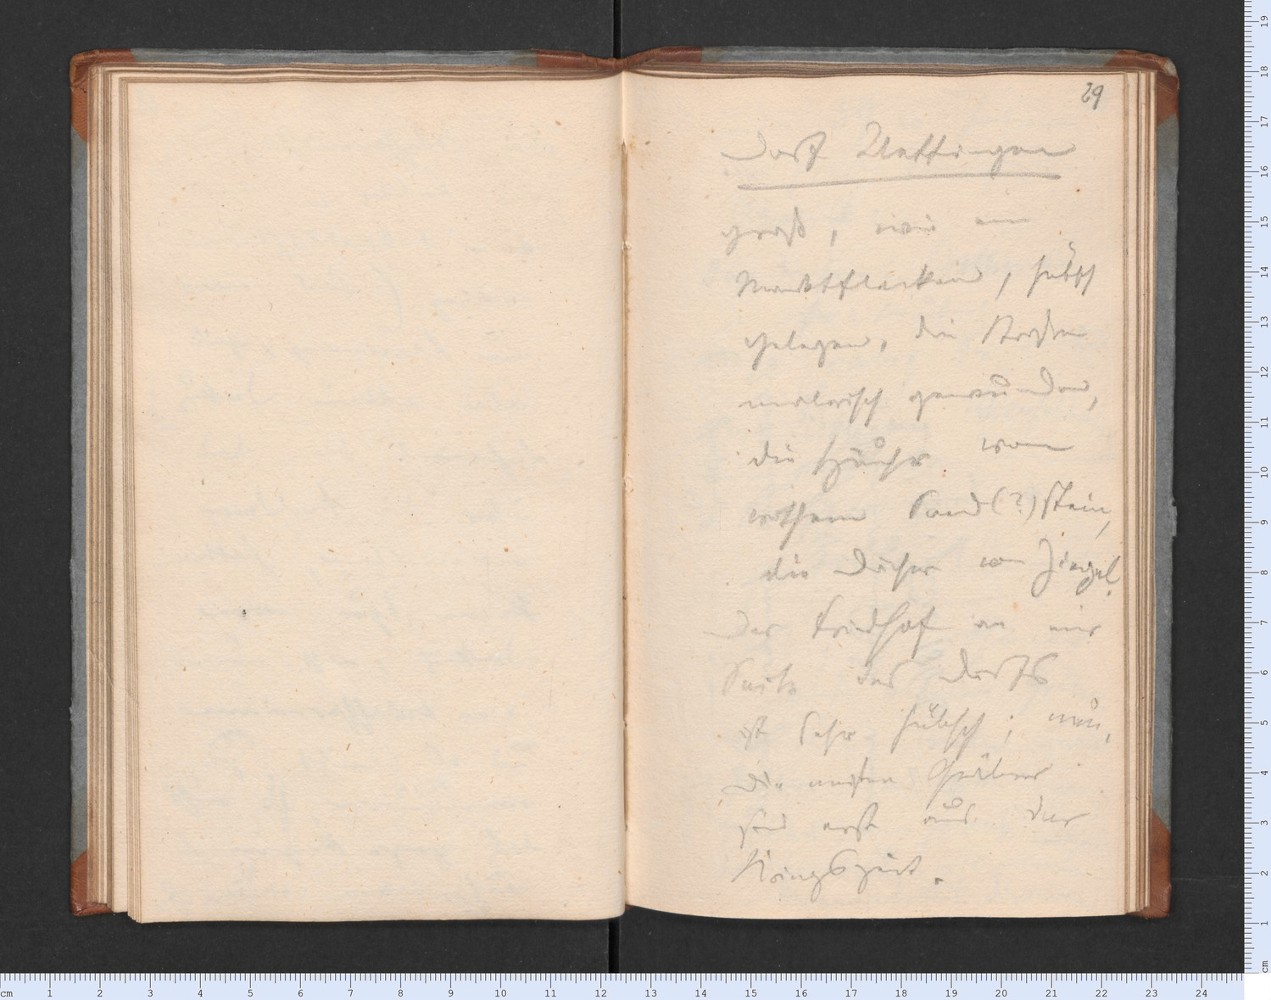 29
Dorf Uettingen
groß, wie ein
Marktflecken, hübsch
gelegen, die Straßen
malerisch gewunden,
die Häuser von
rothem Sand(?)stein,
die Dächer von Ziegel.
Der Friedhof an der
Seite des Dorfs
ist sehr hübsch; neu,
die meisten Gräber
sind erst aus der
Kriegszeit.